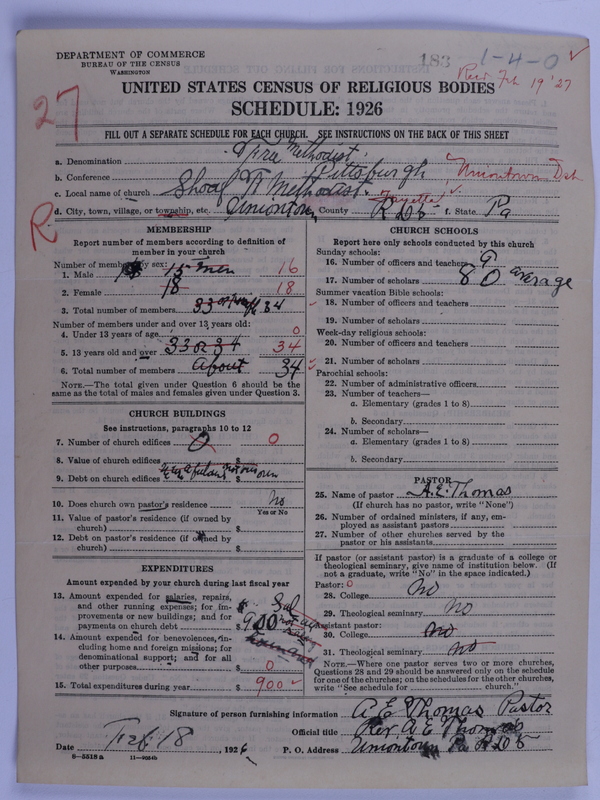 DEPARTMENT OF COMMERCE
BUREAU OF THE CENSUS
WASHINGTON
183 1-4-0 ✓
Recd Feb 19 '27
UNITED STATES CENSUS OF RELIGIOUS BODIES
SCHEDULE: 1926
27
FILL OUT A SEPARATE SCHEDULE FOR EACH CHURCH. SEE INSTRUCTIONS ON THE BACK OF THIS SHEET
a. Denomination Free Methodist
b. Conference Pittsburgh Uniontown Dist
c. Local name of church Shoaf F Methodist
d. City, town, village, or township, etc. Uniontown County Fayette ✓ R D 5 f. State Pa
R
MEMBERSHIP
Report number of members according to definition of
member in your church
Number of members by sex:
1. Male 15 men 16
2. Female 18 18
3. Total number of members 33 or 34
Number of members under and over 13 years old:
4. Under 13 years of age 0
5. 13 years old and over 33 or 34 34
6. Total number of members About 34
NOTE.—The total given under Question 6 should be the
same as the total of males and females given under Question 3.
CHURCH BUILDINGS
See instructions, paragraphs 10 to 12
7. Number of church edifices 0 0
8. Value of church edifices
9. Debt on church edifices
10. Does church own pastor's residence No
Yes or No
11. Value of pastor's residence (if owned by
church) $
12. Debt on pastor's residence (if owned by
church) $
EXPENDITURES
Amount expended by your church during last fiscal year
13. Amount expended for salaries, repairs,
and other running expenses; for im-
provements or new buildings; and for
payments on church debt $ 900
14. Amount expended for benevolences, in-
cluding home and foreign missions; for
denominational support; and for all
other purposes $ 0
15. Total expenditures during year $ 900 ✓
CHURCH SCHOOLS
Report here only schools conducted by this church
Sunday schools:
16. Number of officers and teachers 9
17. Number of scholars 80 average
Summer vacation Bible schools:
18. Number of officers and teachers
19. Number of scholars
Week-day religious schools:
20. Number of officers and teachers
21. Number of scholars
Parochial schools:
22. Number of administrative officers
23. Number of teachers—
a. Elementary (grades 1 to 8)
b. Secondary
24. Number of scholars—
a. Elementary (grades 1 to 8)
b. Secondary
PASTOR
25. Name of pastor A. E. Thomas
(If church has no pastor, write "None")
26. Number of ordained ministers, if any, em-
ployed as assistant pastors
27. Number of other churches served by the
pastor or his assistants
If pastor (or assistant pastor) is a graduate of a college or
theological seminary, give name of institution below. (If
not a graduate, write "No" in the space indicated.)
Pastor: 0
28. College No
29. Theological seminary No
Assistant pastor:
30. College No
31. Theological seminary No
NOTE.—Where one pastor serves two or more churches,
Questions 28 and 29 should be answered only on the schedule
for one of the churches; on the schedules for the other churches,
write "See schedule for church."
Signature of person furnishing information A E Thomas Pastor
Official title Rev A E Thomas
Date Feb 18, 1926 P. O. Address Uniontown Pa R D 5
8—5518 a 11—9024b